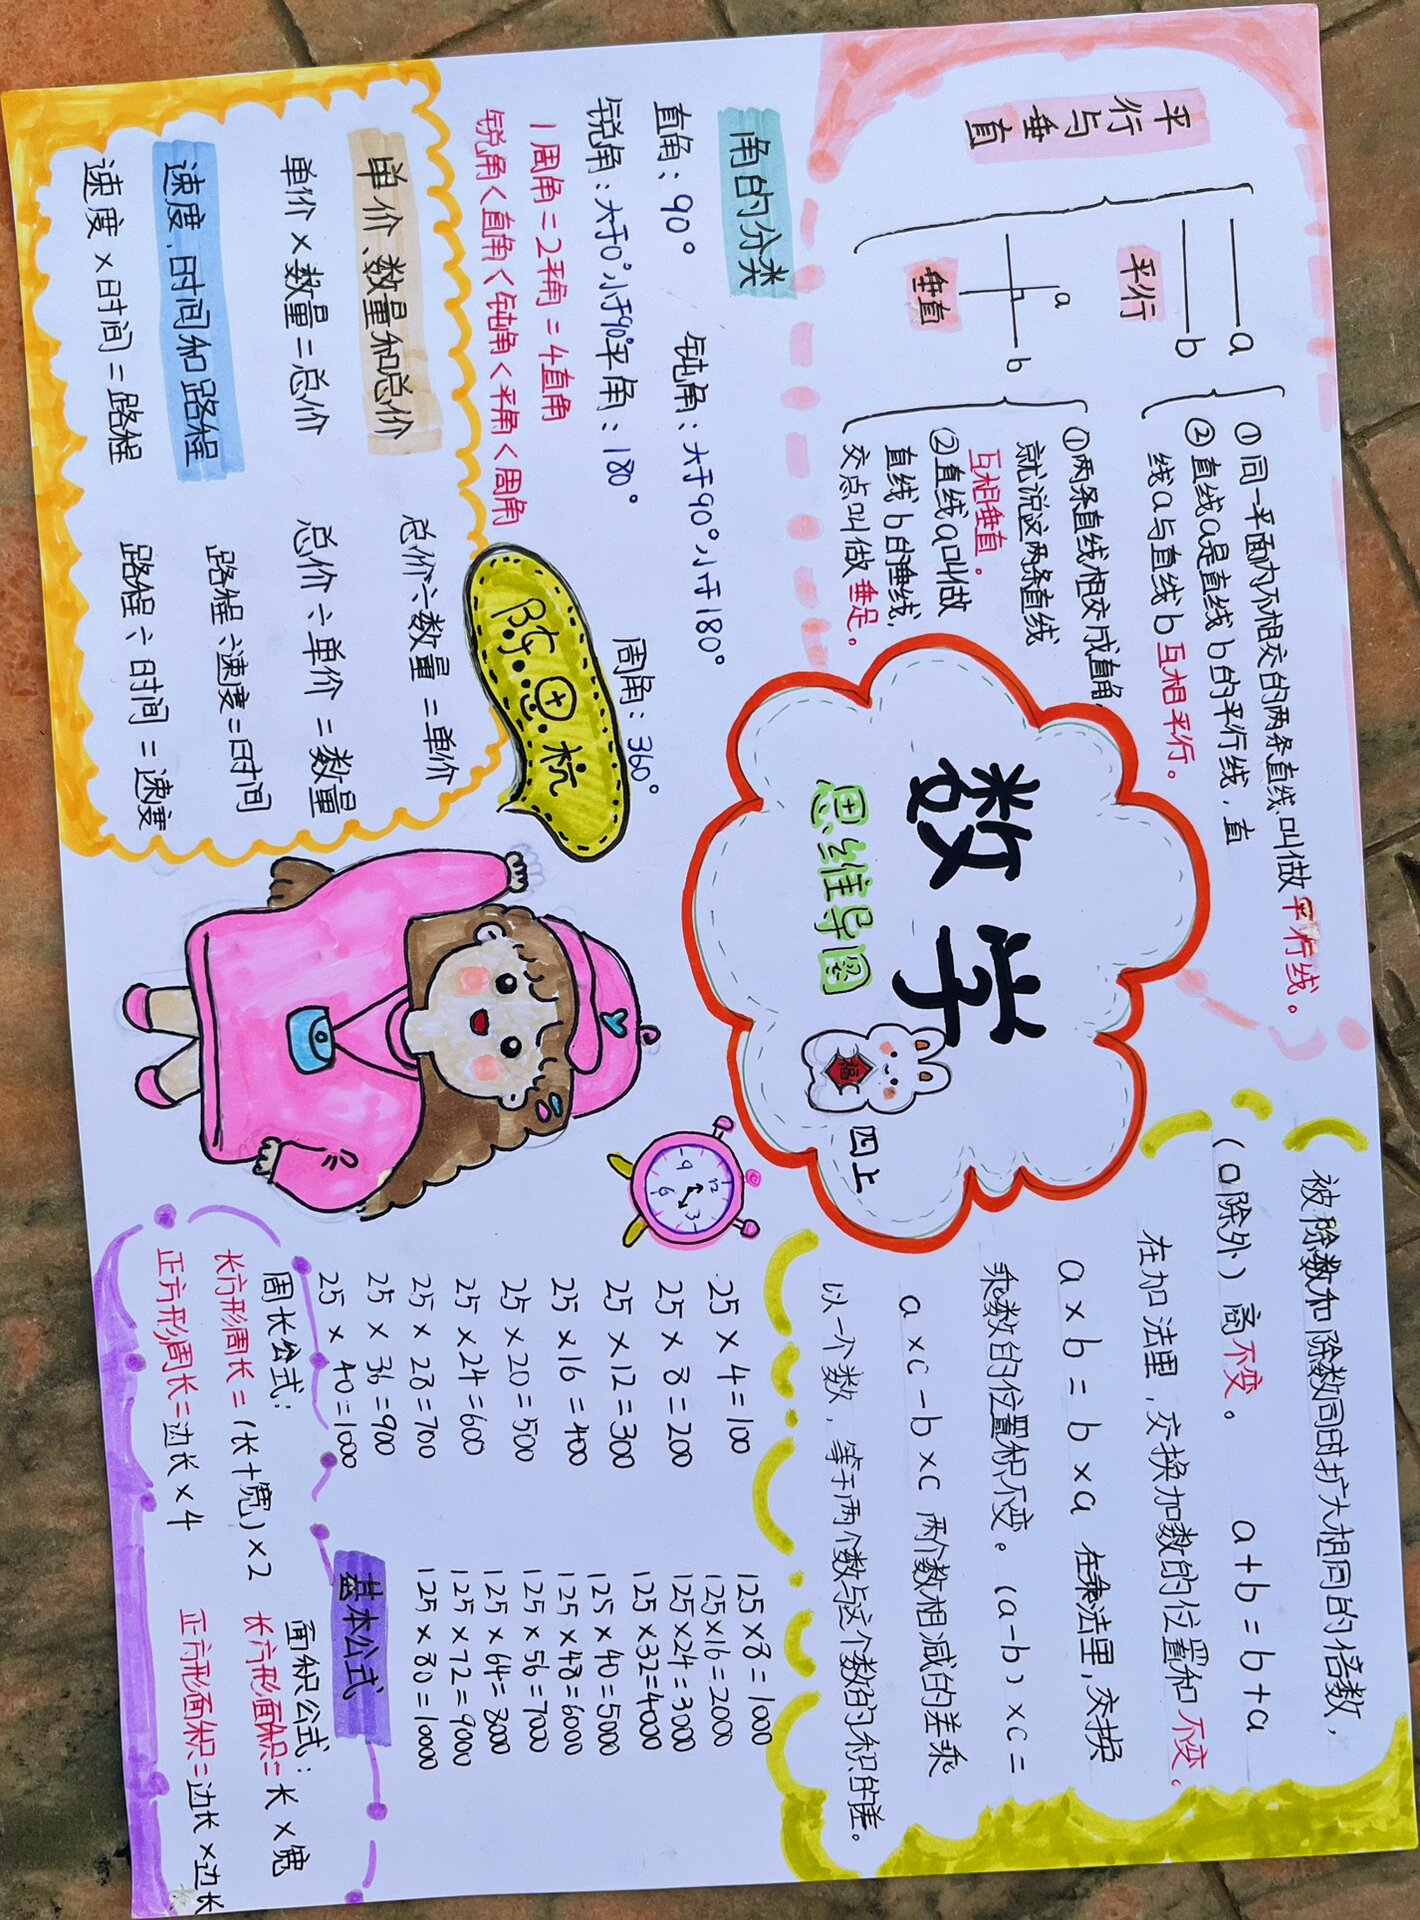 数学
思维导图
四上
福
平行与垂直
平行
a
b
①同一平面内不相交的两条直线叫做平行线。
②直线a是直线b的平行线,直
线a与直线b互相平行。
垂直
a
b
①两条直线相交成直角,
就说这两条直线
互相垂直。
②直线a叫做
直线b的垂线,
交点叫做垂足。
角的分类
直角:90° 钝角:大于90°小于180°
锐角:大于0°小于90° 平角:180° 周角:360°
1周角=2平角=4直角
锐角<直角<钝角<平角<周角
单价、数量和总价
总价÷数量=单价
单价×数量=总价
总价÷单价=数量
速度、时间和路程
路程÷速度=时间
速度×时间=路程
路程÷时间=速度
被除数和除数同时扩大相同的倍数,
(0除外)商不变。 a+b=b+a
在加法里,交换加数的位置和不变。
a×b=b×a 在乘法里,交换
乘数的位置积不变。(a-b)×c=
a×c-b×c 两个数相减的差乘
以一个数,等于两个数与这个数的积的差。
12
3
6
9
25×4=100
25×8=200
25×12=300
25×16=400
25×20=500
25×24=600
25×28=700
25×36=900
25×40=1000
125×8=1000
125×16=2000
125×24=3000
125×32=4000
125×40=5000
125×48=6000
125×56=7000
125×64=8000
125×72=9000
125×80=10000
基本公式
周长公式:
长方形周长=(长+宽)×2
正方形周长=边长×4
面积公式:
长方形面积=长×宽
正方形面积=边长×边长